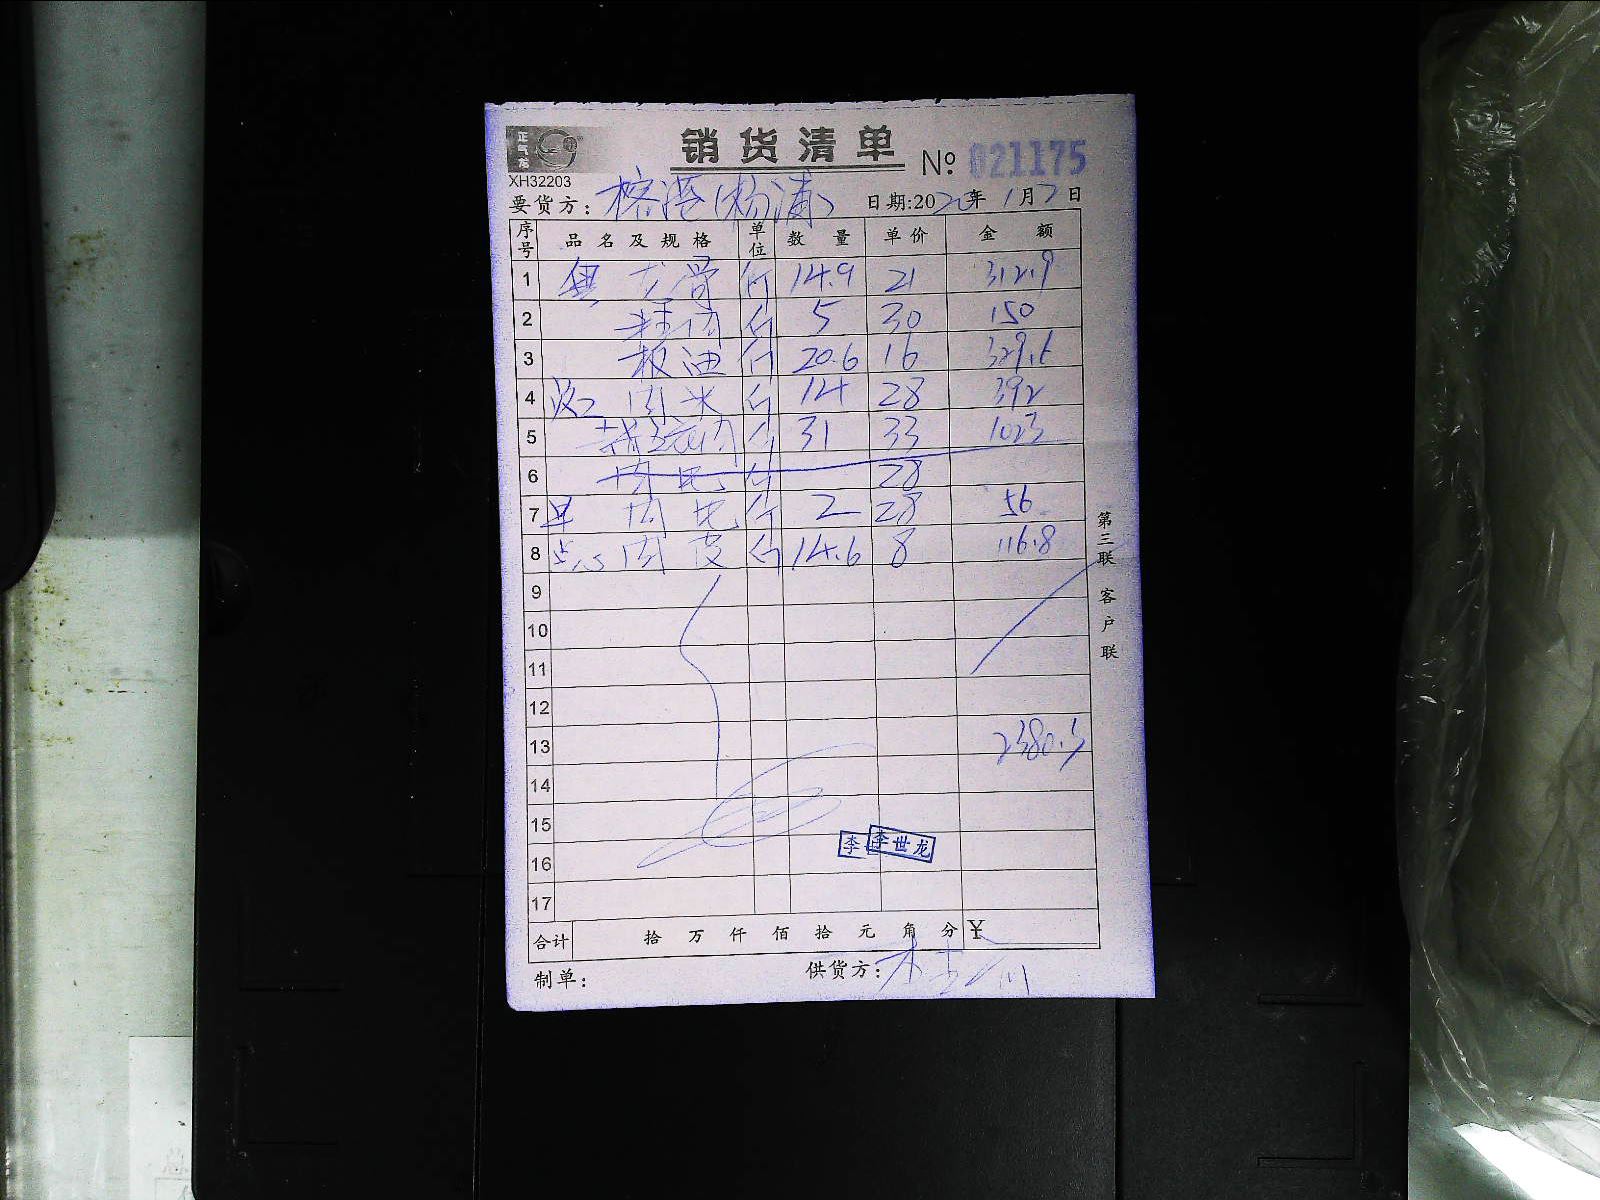 正气龙
销货清单
№ 021175
XH32203
要货方: 榕港(杨浦) 日期:2020年1月7日
序号 品名及规格 单位 数量 单价 金额
1 龙骨 斤 14.9 21 312.9
2 斤 5 30 150
3 板油 斤 20.6 16 329.6
4 肉米 斤 14 28 392
5 斤 31 33 1023
6 斤 28
7 肉 斤 2 28 56
8 点心 肉皮 斤 14.6 8 116.8
9
10
11
12
13 2380.3
14
15
李 李世龙
16
17
合计 拾 万 仟 佰 拾 元 角 分 ¥
制单: 供货方:
第三联 客户联